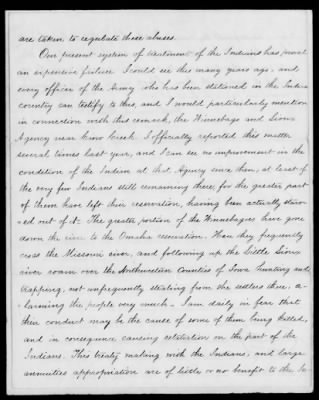 are taken to regulate these abuses.
Our present system of treatment of the Indians has proved
an expensive failure I could see this many years ago, and
every officer of the Army who has been stationed in the Indian
country can testify to this, and I would particularly mention
in connection with this remark, the Winnebago and Sioux
Agency near Crow Creek. I officially reported this matter
several times last year, and I can see no improvement in the
condition of the Indian at that Agency since then, at least of
the very few Indians still remaining there, for the greater part
of them have left their reservation, having been actually starv-
ed out of it. The greater portion of the Winnebagoes have gone
down the river to the Omaha reservation. Here they frequently
cross the Missouri river, and following up the Little Sioux
river roam over the Northwestern Counties of Iowa hunting and
trapping, not unfrequently stealing from the settlers there, a-
larming the people very much. I am daily in fear that
their conduct may be the cause of some of them being killed,
and in consequence causing retaliation on the part of the
Indians. This treaty making with the Indians, and large
annuities appropriation are of little or no benefit to the In-